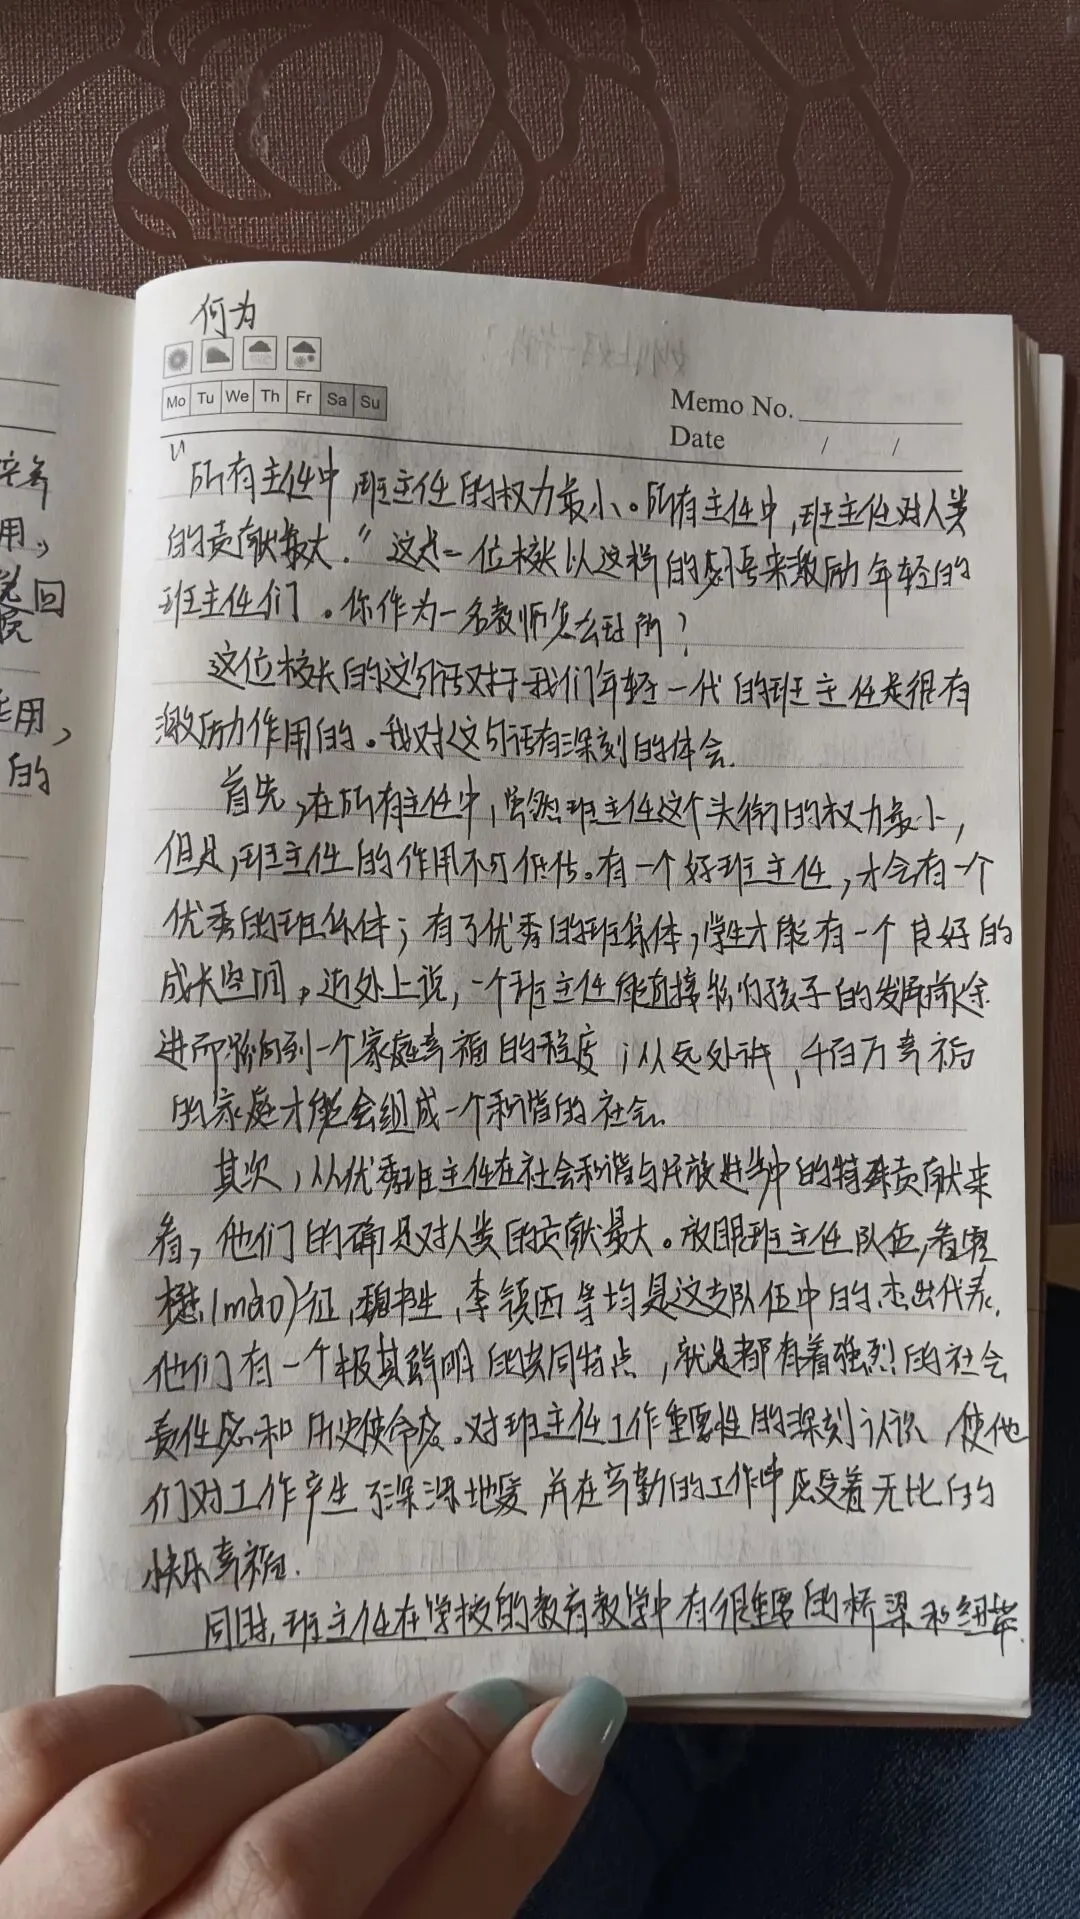 何为
Mo Tu We Th Fr Sa Su
Memo No.
Date / /
"所有主任中,班主任的权力最小。所有主任中,班主任对人类
的贡献最大."这是一位校长以这样的 来激励年轻的
班主任们。你作为一名教师怎么 ?
这位校长的这句话对于我们年轻一代的班主任是很有
激励作用的。我对这句话有深刻的体会.
首先,在所有主任中,虽然班主任这个头衔的权力最小,
但是,班主任的作用不可低估。有一个好班主任,才会有一个
优秀的班集体;有了优秀的班集体,学生才能有一个良好的
成长空间。近处上说,一个班主任能直接影响孩子的发展前途
进而影响到一个家庭幸福的程度;从远处讲,千百万幸福
的家庭才能会组成一个和谐的社会.
其次,从优秀班主任在社会和谐与 进步中的特殊贡献来
看,他们的确是对人类的贡献最大。放眼班主任队伍,
(mao)征,魏书生,李镇西等均是这支队伍中的杰出代表.
他们有一个极其鲜明的共同特点,就是都有着强烈的社会
责任感和历史使命感.对班主任工作重要性的深刻认识,使他
们对工作产生了深深地爱,并在辛勤的工作中感受着无比的
快乐幸福.
同时,班主任在学校的教育教学中有很重要的桥梁和纽带.
回
用,
的